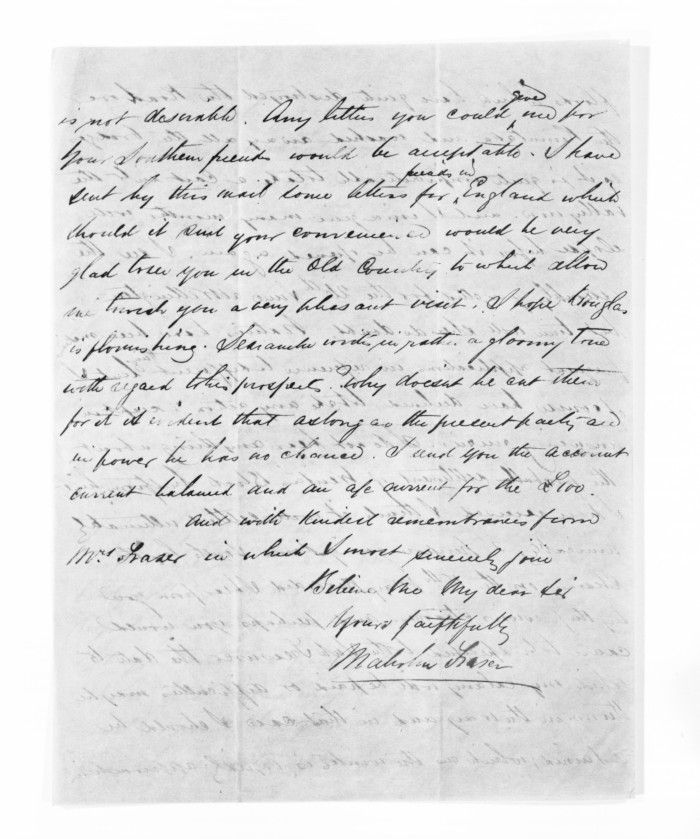 is not desirable. Any letters you could give me for
your Southern friends would be acceptable. I have
sent by this mail some letters for friends in England which
should it suit your convenience would be very
glad to see you in the Old Country to which allow
me to wish you a very pleasant visit. I hope Douglas
is flourishing. Searancke writes in rather a gloomy tone
with regard to his prospects. Why doesn't he cut
for it is evident that as long as the present party are
in power he has no chance. I send you the account
current balanced and an a/c current for the £100.
And with kindest remembrances from
Mrs Fraser in which I most sincerely join
Believe me My dear Sir
Yours faithfully
Malcolm Fraser